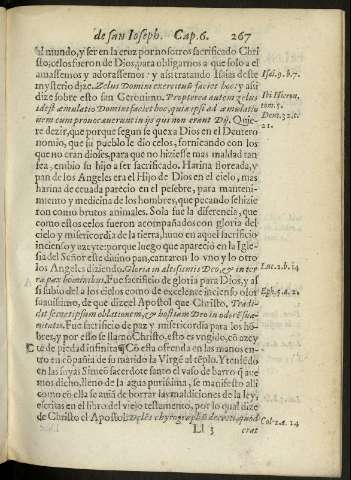 de san Ioseph. Cap.6. 267
al mundo, y ser en la cruz por nosotros sacrificado Chri
sto; celos fueron de Dios, para obligarnos a que solo a el
amassemos y adorassemos: y assi tratando Isaias deste
mysterio dize. Zelus Domini exercituũ faciet hoc: y assi
dize sobre esto san Geronimo. Propterea autem zelus
idest æmulatio Domini faciet hoc, quia ipsi ad æmulatio
nem eum prouocauerunt in ijs qui non erant Dij. Quie-
re dezir, que porque segun se quexa Dios en el Deutero
nomio, que su pueblo le dio celos, fornicando con los
que no eran dioses, para que no hiziesse mas maldad tan
fea, embio su hijo a ser sacrificado. Harina floreada, y
pan de los Angeles era el Hijo de Dios en el cielo, mas
harina de ceuada parecio en el pesebre, para manteni-
miento y medicina de los hombres, que pecando se hizie
ron como brutos animales. Sola fue la diferencia, que
como estos celos fueron acompañados con gloria del
cielo y misericordia de la tierra, huuo en aquel sacrificio
incienso y azeyte: porque luego que aparecio en la Igle-
sia del Señor este diuino pan, cantaron lo vno y lo otro
los Angeles diziendo. Gloria in altissimis Deo, & in ter
ra pax hominibus. Fue sacrificio de gloria para Dios, y as
si subio del a los cielos como de excelente incienso olor
suauissimo, de que dize el Apostol que Christo, Tradi-
dit semetipsum oblationem, & hostiam Deo in odorẽ sua-
uitatis. Fue sacrificio de paz y misericordia para los hõ-
bres, y por esso se llamo Christo, esto es vngido, cõ azey
te de piedad infinita ¶ Cõ esta ofrenda en las manos en-
tro en cõpañia de su marido la Virgẽ al tẽplo. Y teniẽdo
en las suyas Simeõ sacerdote santo el vaso de barro q̃ aue
mos dicho, lleno de la agua purissima, se manifesto alli
como cõ ella se auia de borrar las maldiciones de la ley,
escritas en el libro del viejo testamento, por lo qual dize
de Christo el Apostol: Delẽs chyrographũ decreti, quod
Ll 3 erat
Isai.9.b.7.
Ibi Hieron.
tom.5.
Deut.32.c.
21.
Luc.2.b.14
Eph.5.a.2.
Col.2.c.14